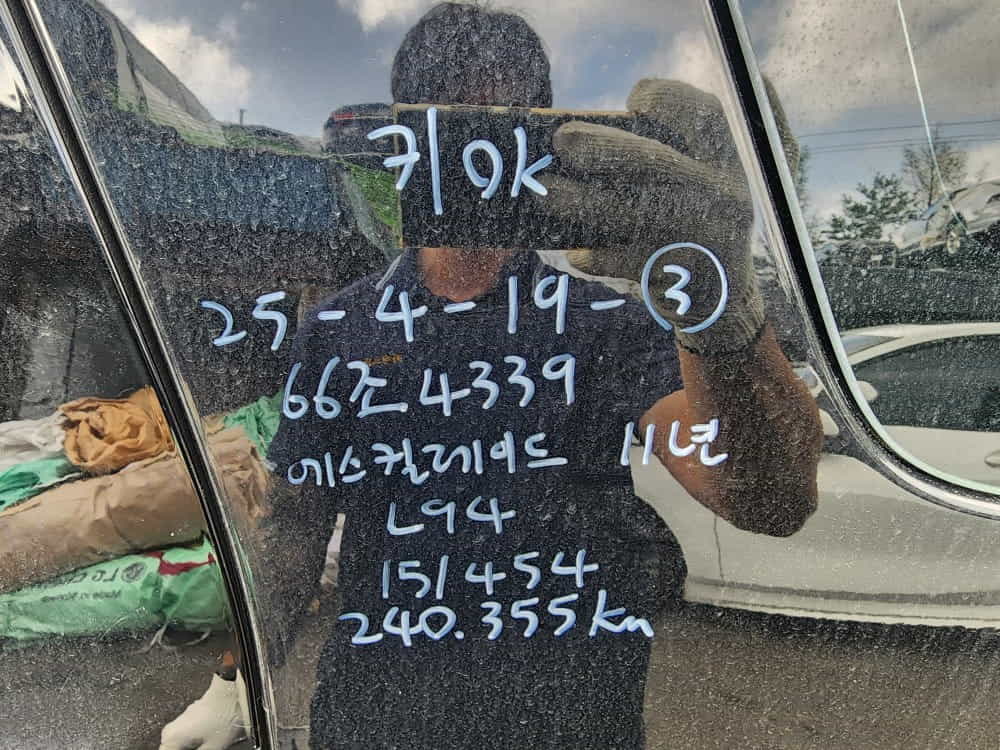 키 OK
25-4-19-③
66조 4339
에스컬레이드 11년
L94
151454
240.355km